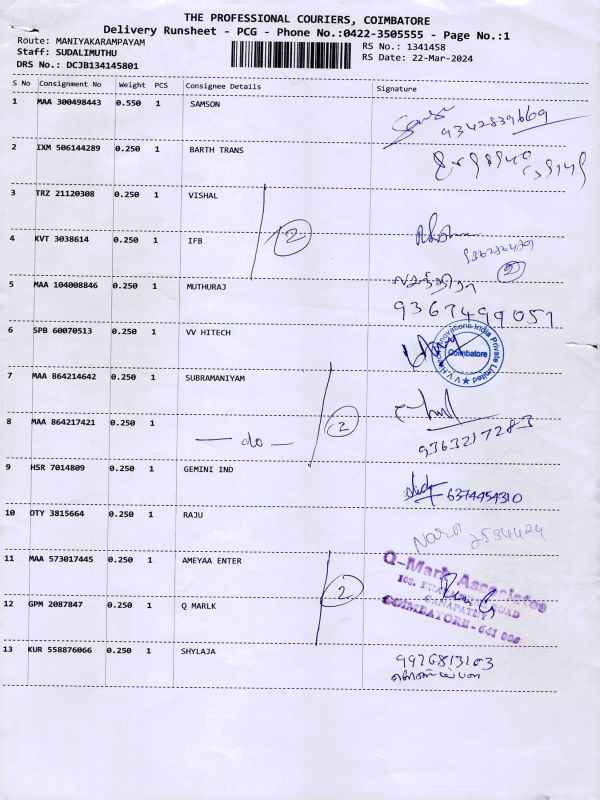 THE PROFESSIONAL COURIERS, COIMBATORE
Delivery Runsheet - PCG - Phone No.:0422-3505555 - Page No.:1
Route: MANIYAKARAMPAYAM
Staff: SUDALIMUTHU
DRS No.: DCJB134145801
RS No.: 1341458
RS Date: 22-Mar-2024
S No Consignment No Weight PCS Consignee Details Signature
1 MAA 300498443 0.550 1 SAMSON
9342839669
2 IXM 506144289 0.250 1 BARTH TRANS
3 TRZ 21120308 0.250 1 VISHAL
2
4 KVT 3038614 0.250 1 IFB
2
5 MAA 104008846 0.250 1 MUTHURAJ
9367499051
6 SPB 60070513 0.250 1 VV HITECH
Innovations India Private Limited
Coimbatore
7 MAA 864214642 0.250 1 SUBRAMANIYAM
2
8 MAA 864217421 0.250 1 — do —
9363217283
9 HSR 7014809 0.250 1 GEMINI IND
6374454310
10 OTY 3815664 0.250 1 RAJU
11 MAA 573017445 0.250 1 AMEYAA ENTER
Q-Mark Associates
ROAD
GANAPATHY
COIMBATORE - 641 006
2
12 GPM 2087847 0.250 1 Q MARLK
13 KUR 558876066 0.250 1 SHYLAJA
9976813103